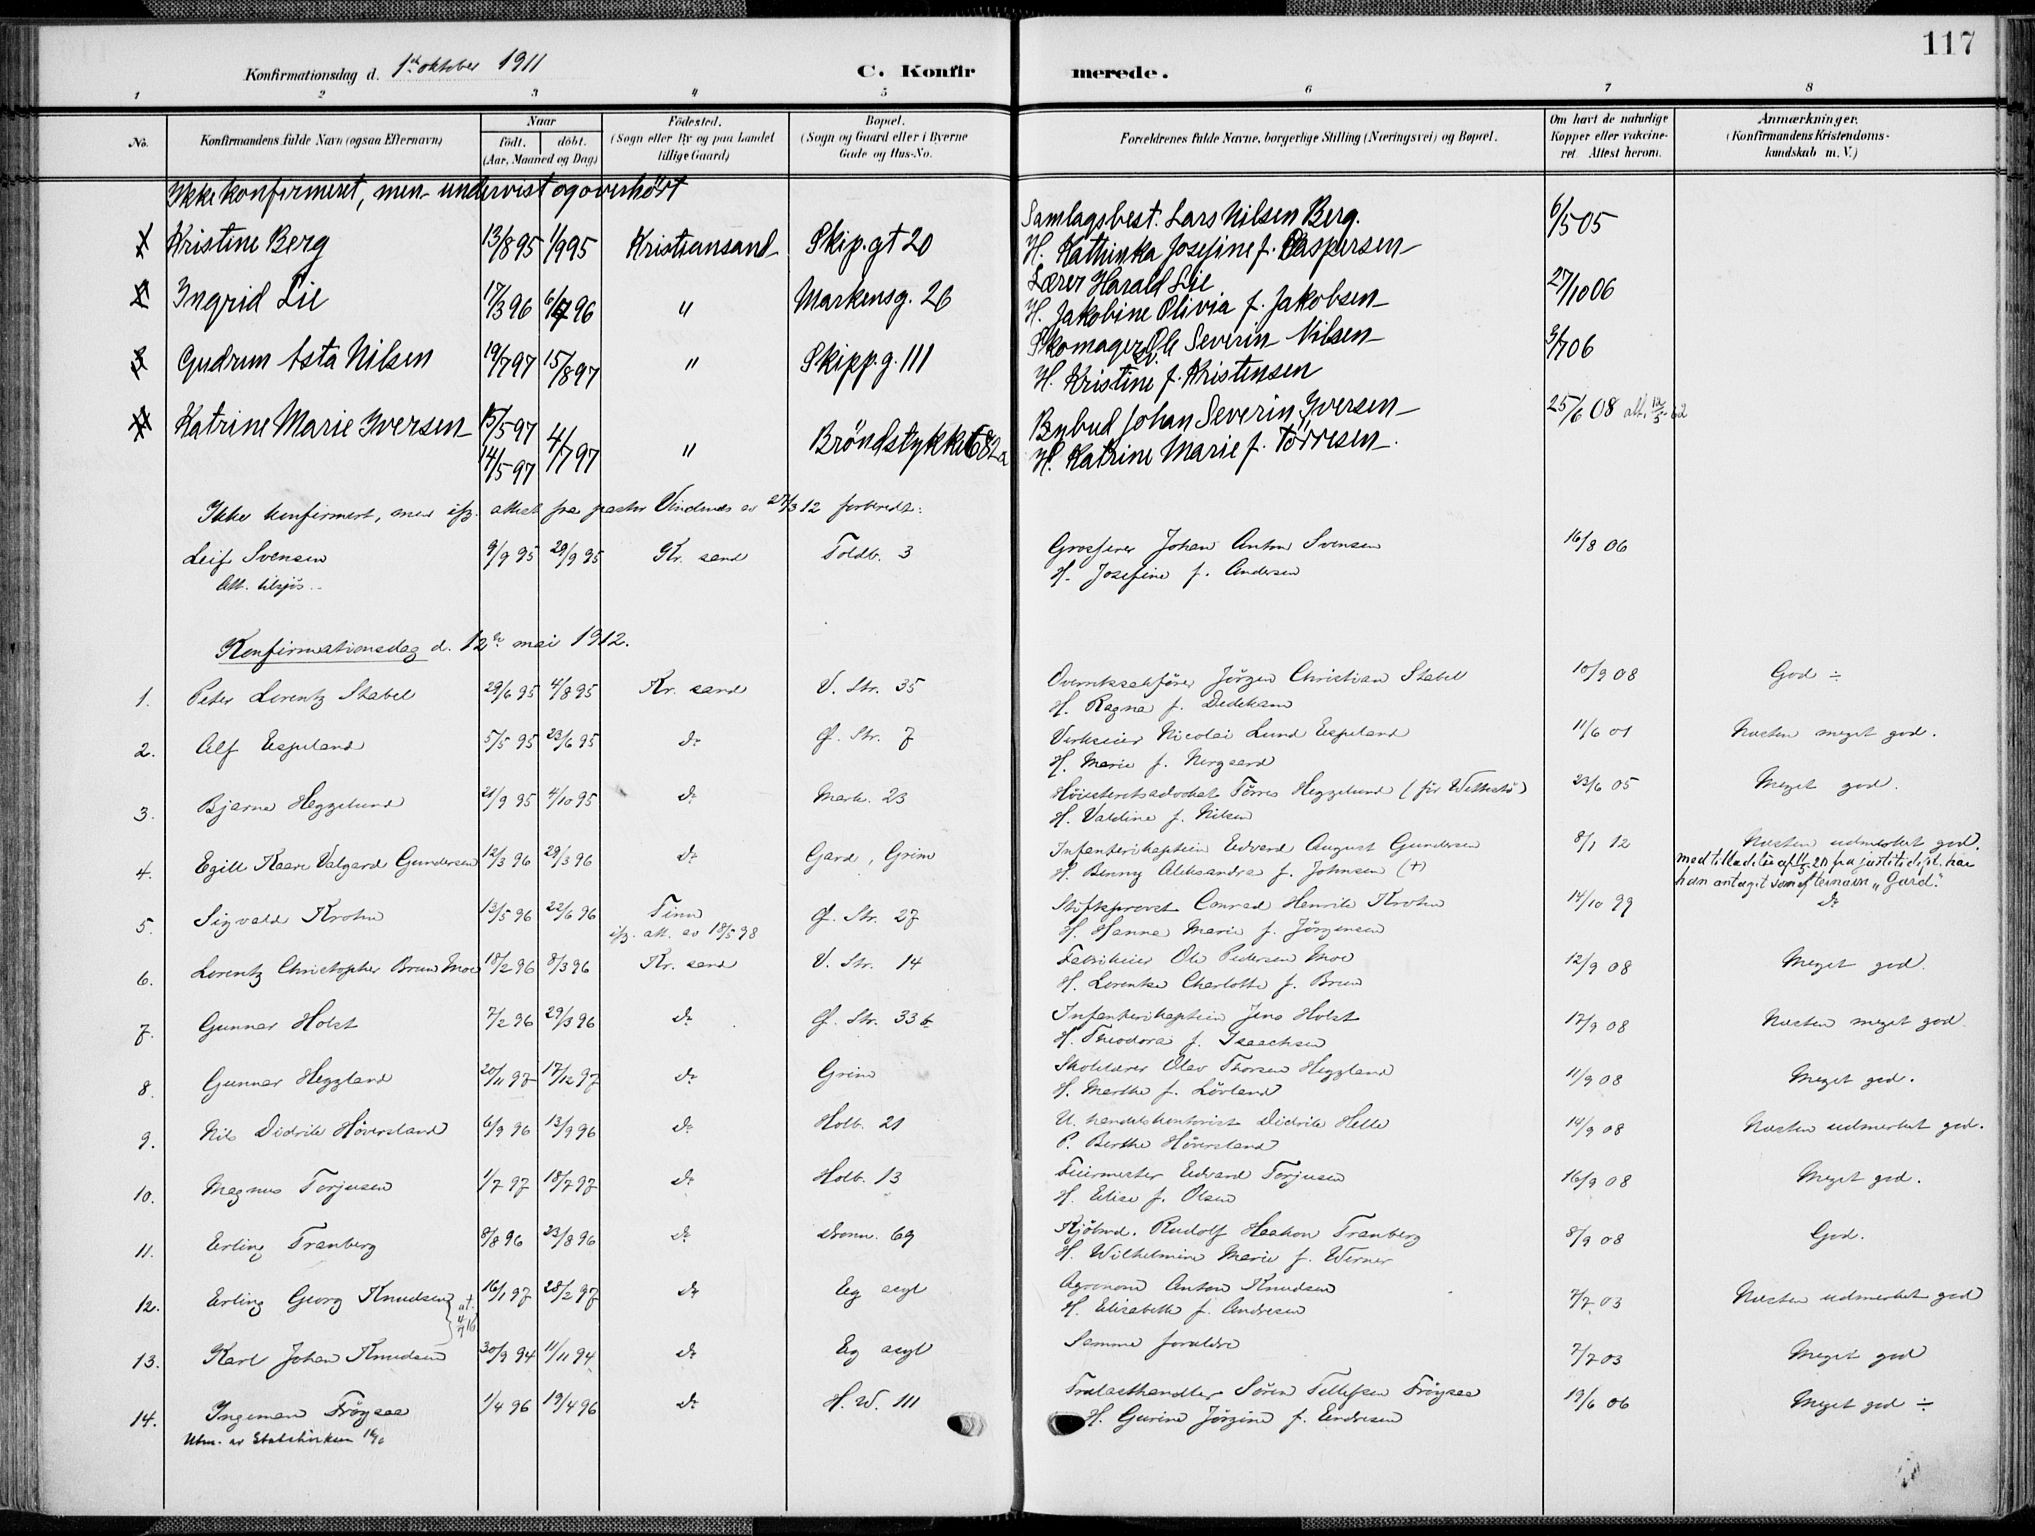 117
Konfirmationsdag d. 1ste oktober 1911
C. Konfirmerede.
1 2 3 4 5 6 7 8
No.
Konfirmandens fulde Navn (ogsaa Efternavn)
Naar
født. døbt.
(Aar, Maaned og Dag)
Fødested.
(Sogn eller By og paa Landet tillige Gaard)
Bopæl.
(Sogn og Gaard eller i Byerne Gade og Hus-No.
Forældrenes fulde Navne, borgerlige Stilling (Næringsvei) og Bopæl.
Om havt de naturlige Kopper eller vakcineret. Attest herom.
Anmærkninger.
(Konfirmandens Kristendomskundskab m. V.)
Ikke konfirmeret, men undervist og overhørt
Kristine Berg 13/8 95 1/9 95 Kristiansand Skip.gt 20 Samlagsbest. Lars Nilsen Berg. 6/5 05
H. Kathinka Josefine f. Caspersen
Ingrid Lie 17/3 96 6/7 96 " Markensg. 26 Lærer Harald Lie 27/10 06
H. Jakobine Olivia f. Jakobsen
Gudrun Asta Nilsen 19/7 97 15/8 97 " Skipp.g. 111 Skomager Ole Severin Nilsen 3/7 06
H. Kristine f. Kristensen
Katrine Marie Iversen 15/5 97 4/7 97 " Brøndstykket 682a Bybud Johan Severin Iversen 25/6 08
14/5 97 H. Katrine Marie f. Torresen
Ikke konfirmert, men ifg. attest fra pastor Vindnes av 27/3 12 forberedt:
Leif Svensen 9/9 95 29/9 95 Kr. sand Toldb. 3 Grosserer Johan Anton Svensen 16/8 06
Att. tilsjøs. H. Josefine f. Andersen
Konfirmationsdag d. 12te mai 1912.
1. Peter Lorentz Stabel 29/6 95 4/8 95 Kr. sand V. Str. 35 Overretssakfører Jørgen Christian Stabel 10/9 08 God ÷
H. Ragna f. Dedekam
2. Alf Espeland 5/5 95 23/6 95 do Ø. Str. 7 Verkseier Nicolai Lund Espeland 11/6 01 Næsten meget god.
H. Marie f. Nergaard
3. Bjarne Heggelund 21/9 95 4/10 95 do Mark. 23 Høiesteretsadvokat Tørres Heggelund 23/6 05 Meget god.
H. Valdine f. Nilsen
4. Egill Kaare Valgard Gundersen 12/3 96 29/3 96 do Gard, Grim Infanterikaptein Edvard August Gundersen 8/1 12 Næsten udmerket god.
H. Benny Aleksandra f. Johnsen (+) med tilladelse af 11/5 20 fra justitsdept. har han antaget som efternavn „Gard."
5. Sigvald Krohn 13/5 96 22/6 96 Tinn Ø. Str. 27 Stiftsprovst Conrad Henrik Krohn 14/10 99 do
ifg. att. av 18/5 98 H. Hanna Marie f. Jørgensen
6. Lorentz Christopher Bruun Moe 18/2 96 8/3 96 Kr. sand V. Str. 14 Fabrikeier Ole Pedersen Moe 12/9 08 Meget god.
H. Lorentze Charlotte f. Bruun
7. Gunnar Holst 7/2 96 29/3 96 do Ø. Str. 33 b Infanterikaptein Jens Holst 17/9 08 Næsten meget god
H. Theodora f. Isaachsen
8. Gunnar Heggland 20/11 97 17/12 97 do Grim Skolelærer Olav Thorsen Heggland 11/9 08 Meget god.
H. Marthe f. Løvland
9. Nils Didrik Høversland 6/9 96 13/9 96 do Holb. 21 U. handelskontorist Didrik Helle 14/9 08 Næsten udmerket god.
P. Berthe Høversland
10. Magnus Torjusen 1/7 97 18/7 97 do Holb. 13 Feiermester Edvard Torjusen 16/9 08 Meget god.
H. Elise f. Olsen
11. Erling Tranberg 8/8 96 23/8 96 do Dronn. 69 Kjøbmd. Rudolf Haakon Tranberg 8/9 08 God.
H. Wilhelmine Marie f. Werner
12. Erling Georg Knudsen 16/1 97 28/2 97 do Eg asyl Agronom Anton Knudsen 7/7 03 Næsten udmerket god
at. 4/7 16 H. Elisabeth f. Andresen
13. Karl Johan Knudsen 30/9 94 11/11 94 do Eg asyl Samme forældre 7/7 03 Meget god
14. Ingeman Frøysaa 1/4 96 19/4 96 do H. W. 111 Trælasthandler Søren Tellefsen Frøysaa 19/6 06 Meget god ÷
Utm. av Statskirken H. Gurine Jørgine f. Endresen